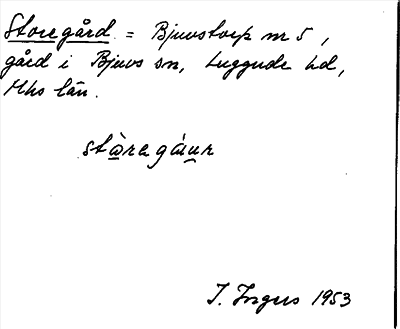 Storegård = Bjuvstorp nr 5,
gård i Bjuvs sn, Luggude hd,
Mhs län.
stàregáur
I. Ingers 1953